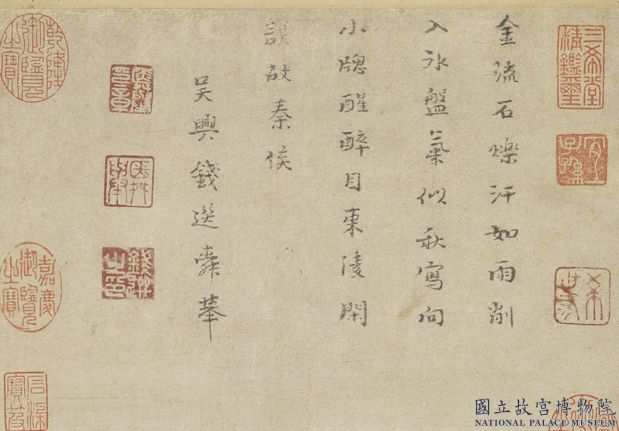 三希堂精鑑璽
宜子孫
金流石爍汗如雨削
入氷盤氣似秋寫向
小牕醒醉目東陵閑
說故秦侯
吳興錢選舜舉
錢選之印
乾隆御覽之寶
嘉慶御覽之寶
石渠寶笈
國立故宮博物院
NATIONAL PALACE MUSEUM